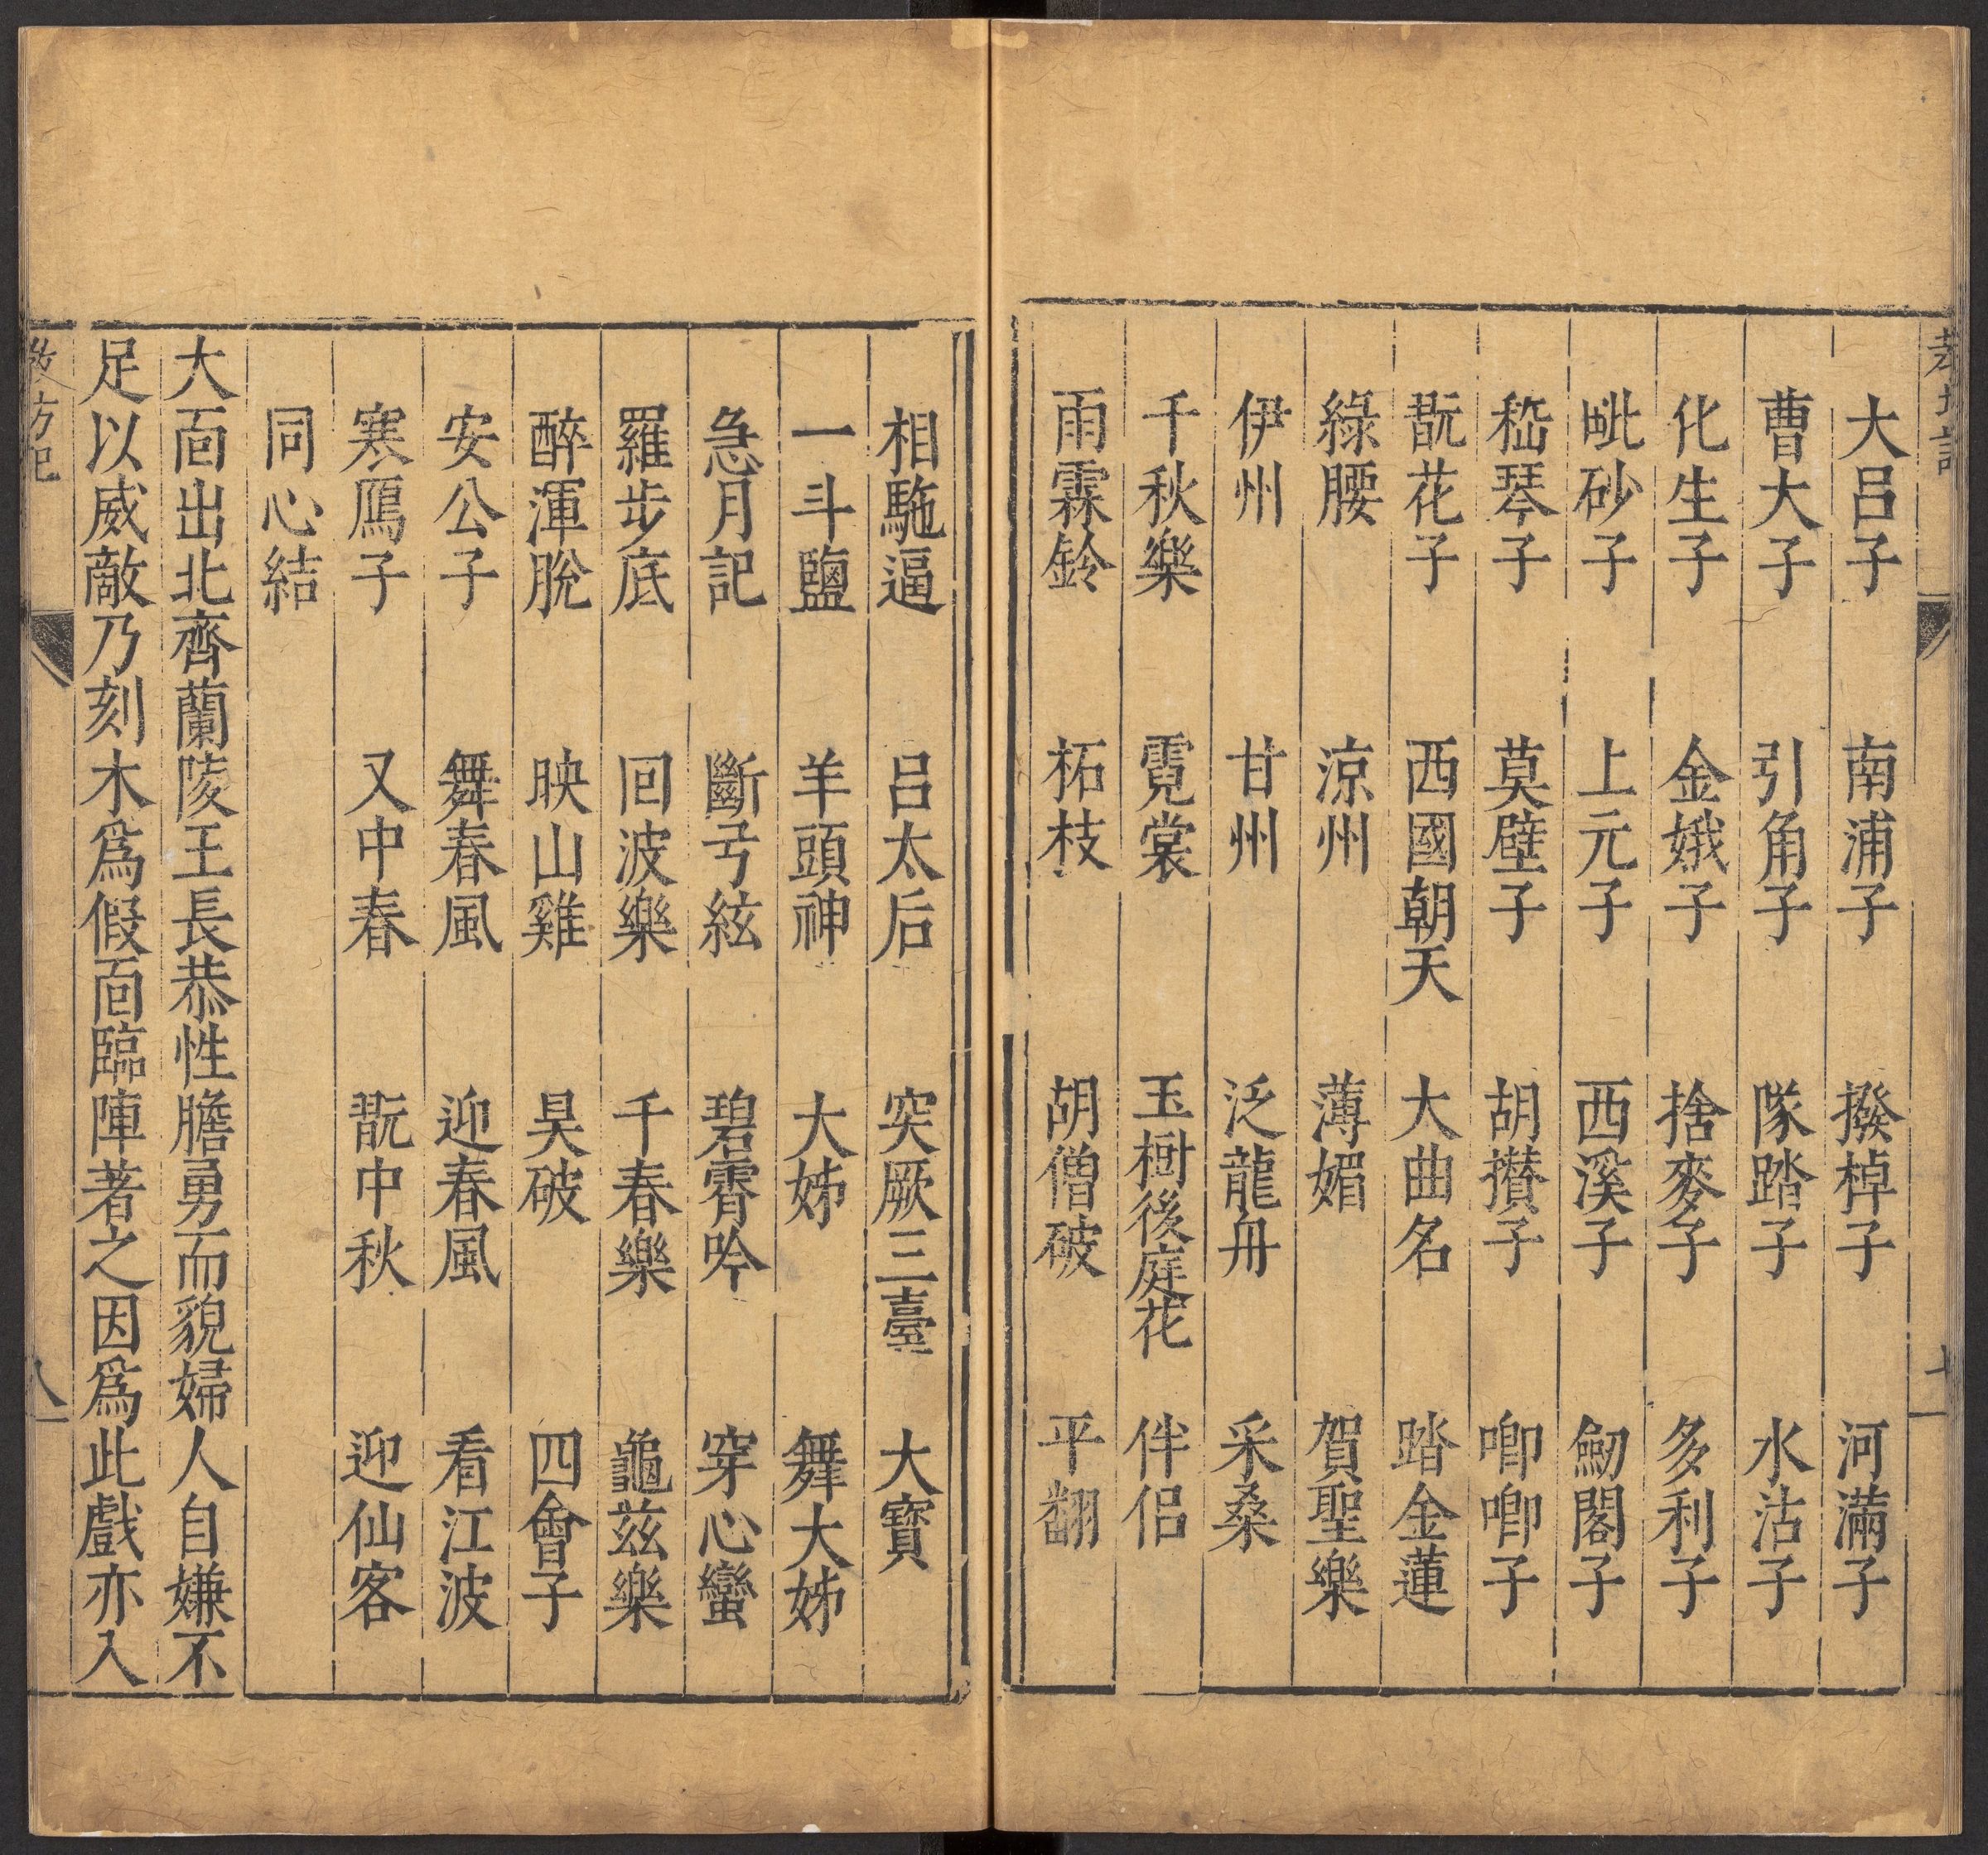 教坊記
大呂子 南浦子 撥棹子 河滿子
曹大子 引角子 隊踏子 水沽子
化生子 金娥子 捨麥子 多利子
毗砂子 上元子 西溪子 劒閣子
嵇琴子 莫壁子 胡攢子 唧唧子
翫花子 西國朝天 大曲名 踏金蓮
綠腰 涼州 薄媚 賀聖樂
伊州 甘州 泛龍舟 采桑
千秋樂 霓裳 玉樹後庭花 伴侶
雨霖鈴 柘枝 胡僧破 平翻
相駞逼 呂太后 突厥三臺 大寶
一斗鹽 羊頭神 大姊 舞大姊
急月記 斷弓絃 碧霄吟 穿心蠻
羅步底 回波樂 千春樂 龜茲樂
醉渾脫 映山雞 昊破 四會子
安公子 舞春風 迎春風 看江波
寒鴈子 又中春 翫中秋 迎仙客
同心結
大面出北齊蘭陵王長恭性膽勇而貌婦人自嫌不
足以威敵乃刻木爲假面臨陣著之因爲此戲亦入
教坊記
八